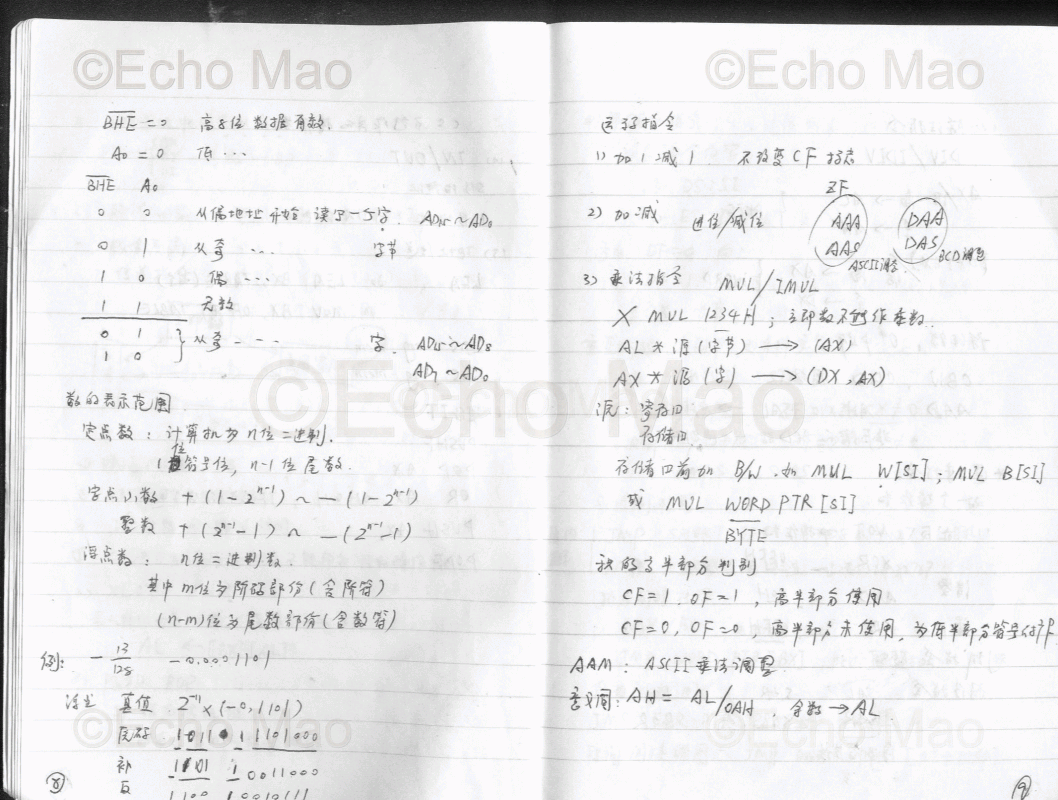 ©Echo Mao
©Echo Mao
©Echo Mao
©Echo Mao
©Echo Mao
BHE = 0 高8位数据有效.
A0 = 0 低 …
BHE A0
0 0 从偶地址开始读写一个字. AD15 ~ AD0
0 1 从奇 …. 字节
1 0 偶 ….
1 1 无效
0 1 } 从奇 …. 字. AD15 ~ AD8
1 0 AD7 ~ AD0
数的表示范围.
定点数: 计算机为n位二进制.
1位符号位, n-1位尾数.
定点小数 + (1-2^{n-1}) ~ - (1-2^{n-1})
整数 + (2^{n-1}-1) ~ - (2^{n-1}-1)
浮点数: n位二进制数.
其中m位为阶码部份(含阶符)
(n-m)位为尾数部份(含数符)
例: - 13/128 -0.0001101
浮点 真值 2^{-11} × (-0.1101)
原码 1 1101000
补 1101 1 0011000
反 1100 1 0010111
⑧
运算指令
1) 加1减1 不改变CF标志
ZF
2) 加减 进位/减位 AAA DAA
AAS DAS
ASCII调整 BCD调整
3) 乘法指令 MUL/IMUL
X MUL 1234H ; 立即数不能作乘数.
AL * 源 (字节) → (AX)
AX * 源 (字) → (DX, AX)
源: 寄存四
存储四
存储四前加 B/W. 如 MUL W[SI]; MUL B[SI]
或 MUL WORD PTR [SI]
BYTE
积的高半部分判别
CF=1. OF=1, 高半部分使用
CF=0, OF=0, 高半部分未使用, 为低半部分符号扩
AAM: ASCII乘法调整
AH = AL/0AH 余数 → AL
⑨